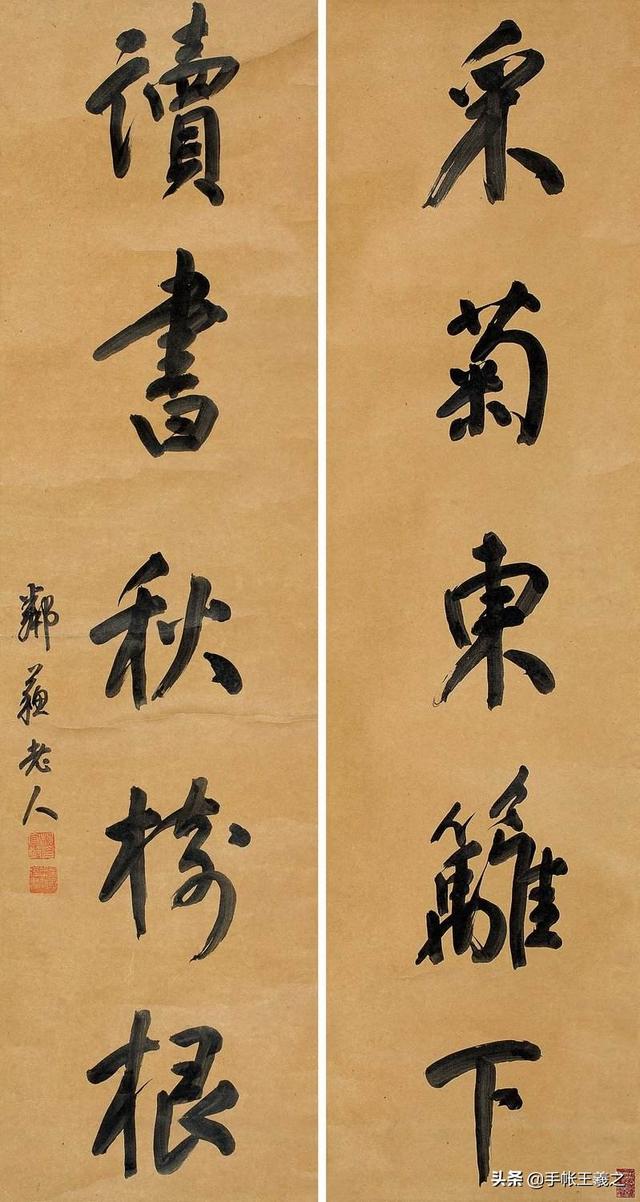 采菊東籬下
讀書秋樹根
鄰蘓老人
头条 @手帐王羲之